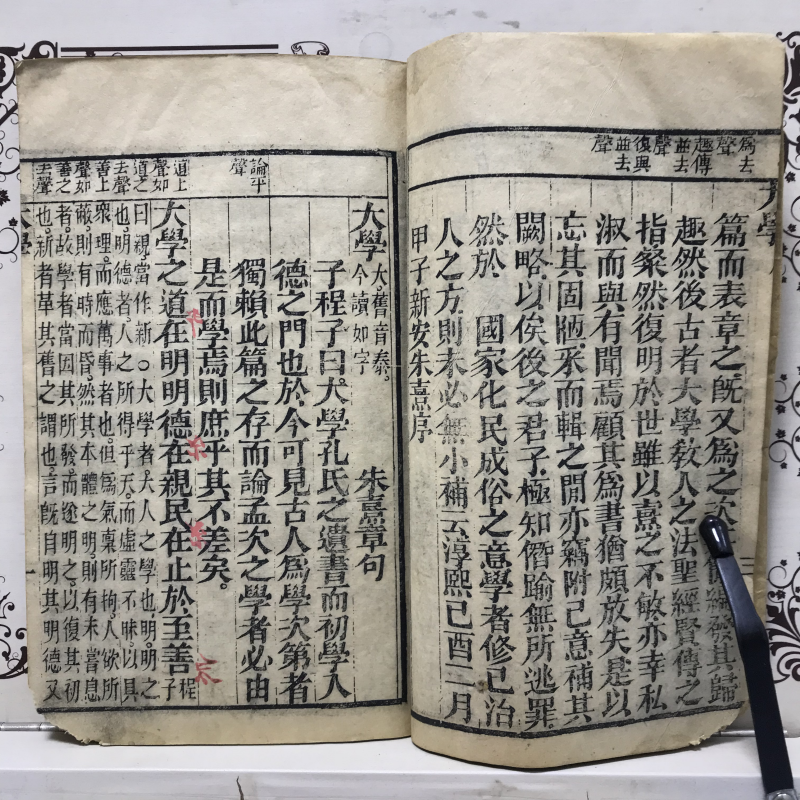 爲去
聲
趣傳
並去
聲
復與
並去
聲
篇而表章之旣又爲之次其簡編發其歸
趣然後古者大學教人之法聖經賢傳之
指粲然復明於世雖以熹之不敏亦幸私
淑而與有聞焉顧其爲書猶頗放失是以
忘其固陋采而輯之閒亦竊附己意補其
闕略以俟後之君子極知僭踰無所逃罪
然於 國家化民成俗之意學者修己治
人之方則未必無小補云淳熙己酉二月
甲子新安朱熹序
論平
聲
道上
聲如
道之
去聲
善上
聲如
善之
去聲
大學 大舊音泰。今讀如字 朱熹章句
子程子曰大學孔氏之遺書而初學入
德之門也於今可見古人爲學次第者
獨賴此篇之存而論孟次之學者必由
是而學焉則庶乎其不差矣。
大學之道在明明德在親民在止於至善 程子
曰親當作新○大學者大人之學也明明之
也明德者人之所得乎天而虛靈不昧以具
衆理而應萬事者也但爲氣稟所拘人欲所
蔽則有時而昏然其本體之明則有未嘗息
者故學者當因其所發而遂明之以復其初
也新者革其舊之謂也言旣自明其明德又